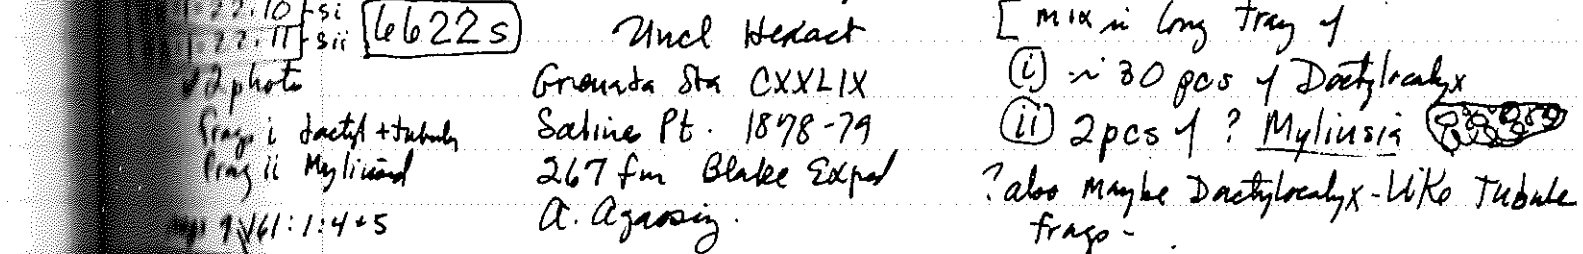 1.22.10-si
1.22.11-sii
6622s
2 photo
frags i dactyl + tubule
frag ii Myliusid
1:4+5
Uncl Hexact
Grenada Sta CXXLIX
Saline Pt. 1878-79
267 fm Blake Exped
A. Agassiz.
[mix in long tray of
(i) ~ 30 pcs of Dactylocalyx
(ii) 2 pcs of ? Myliusia
? also maybe Dactylocalyx-like tubule
frags -